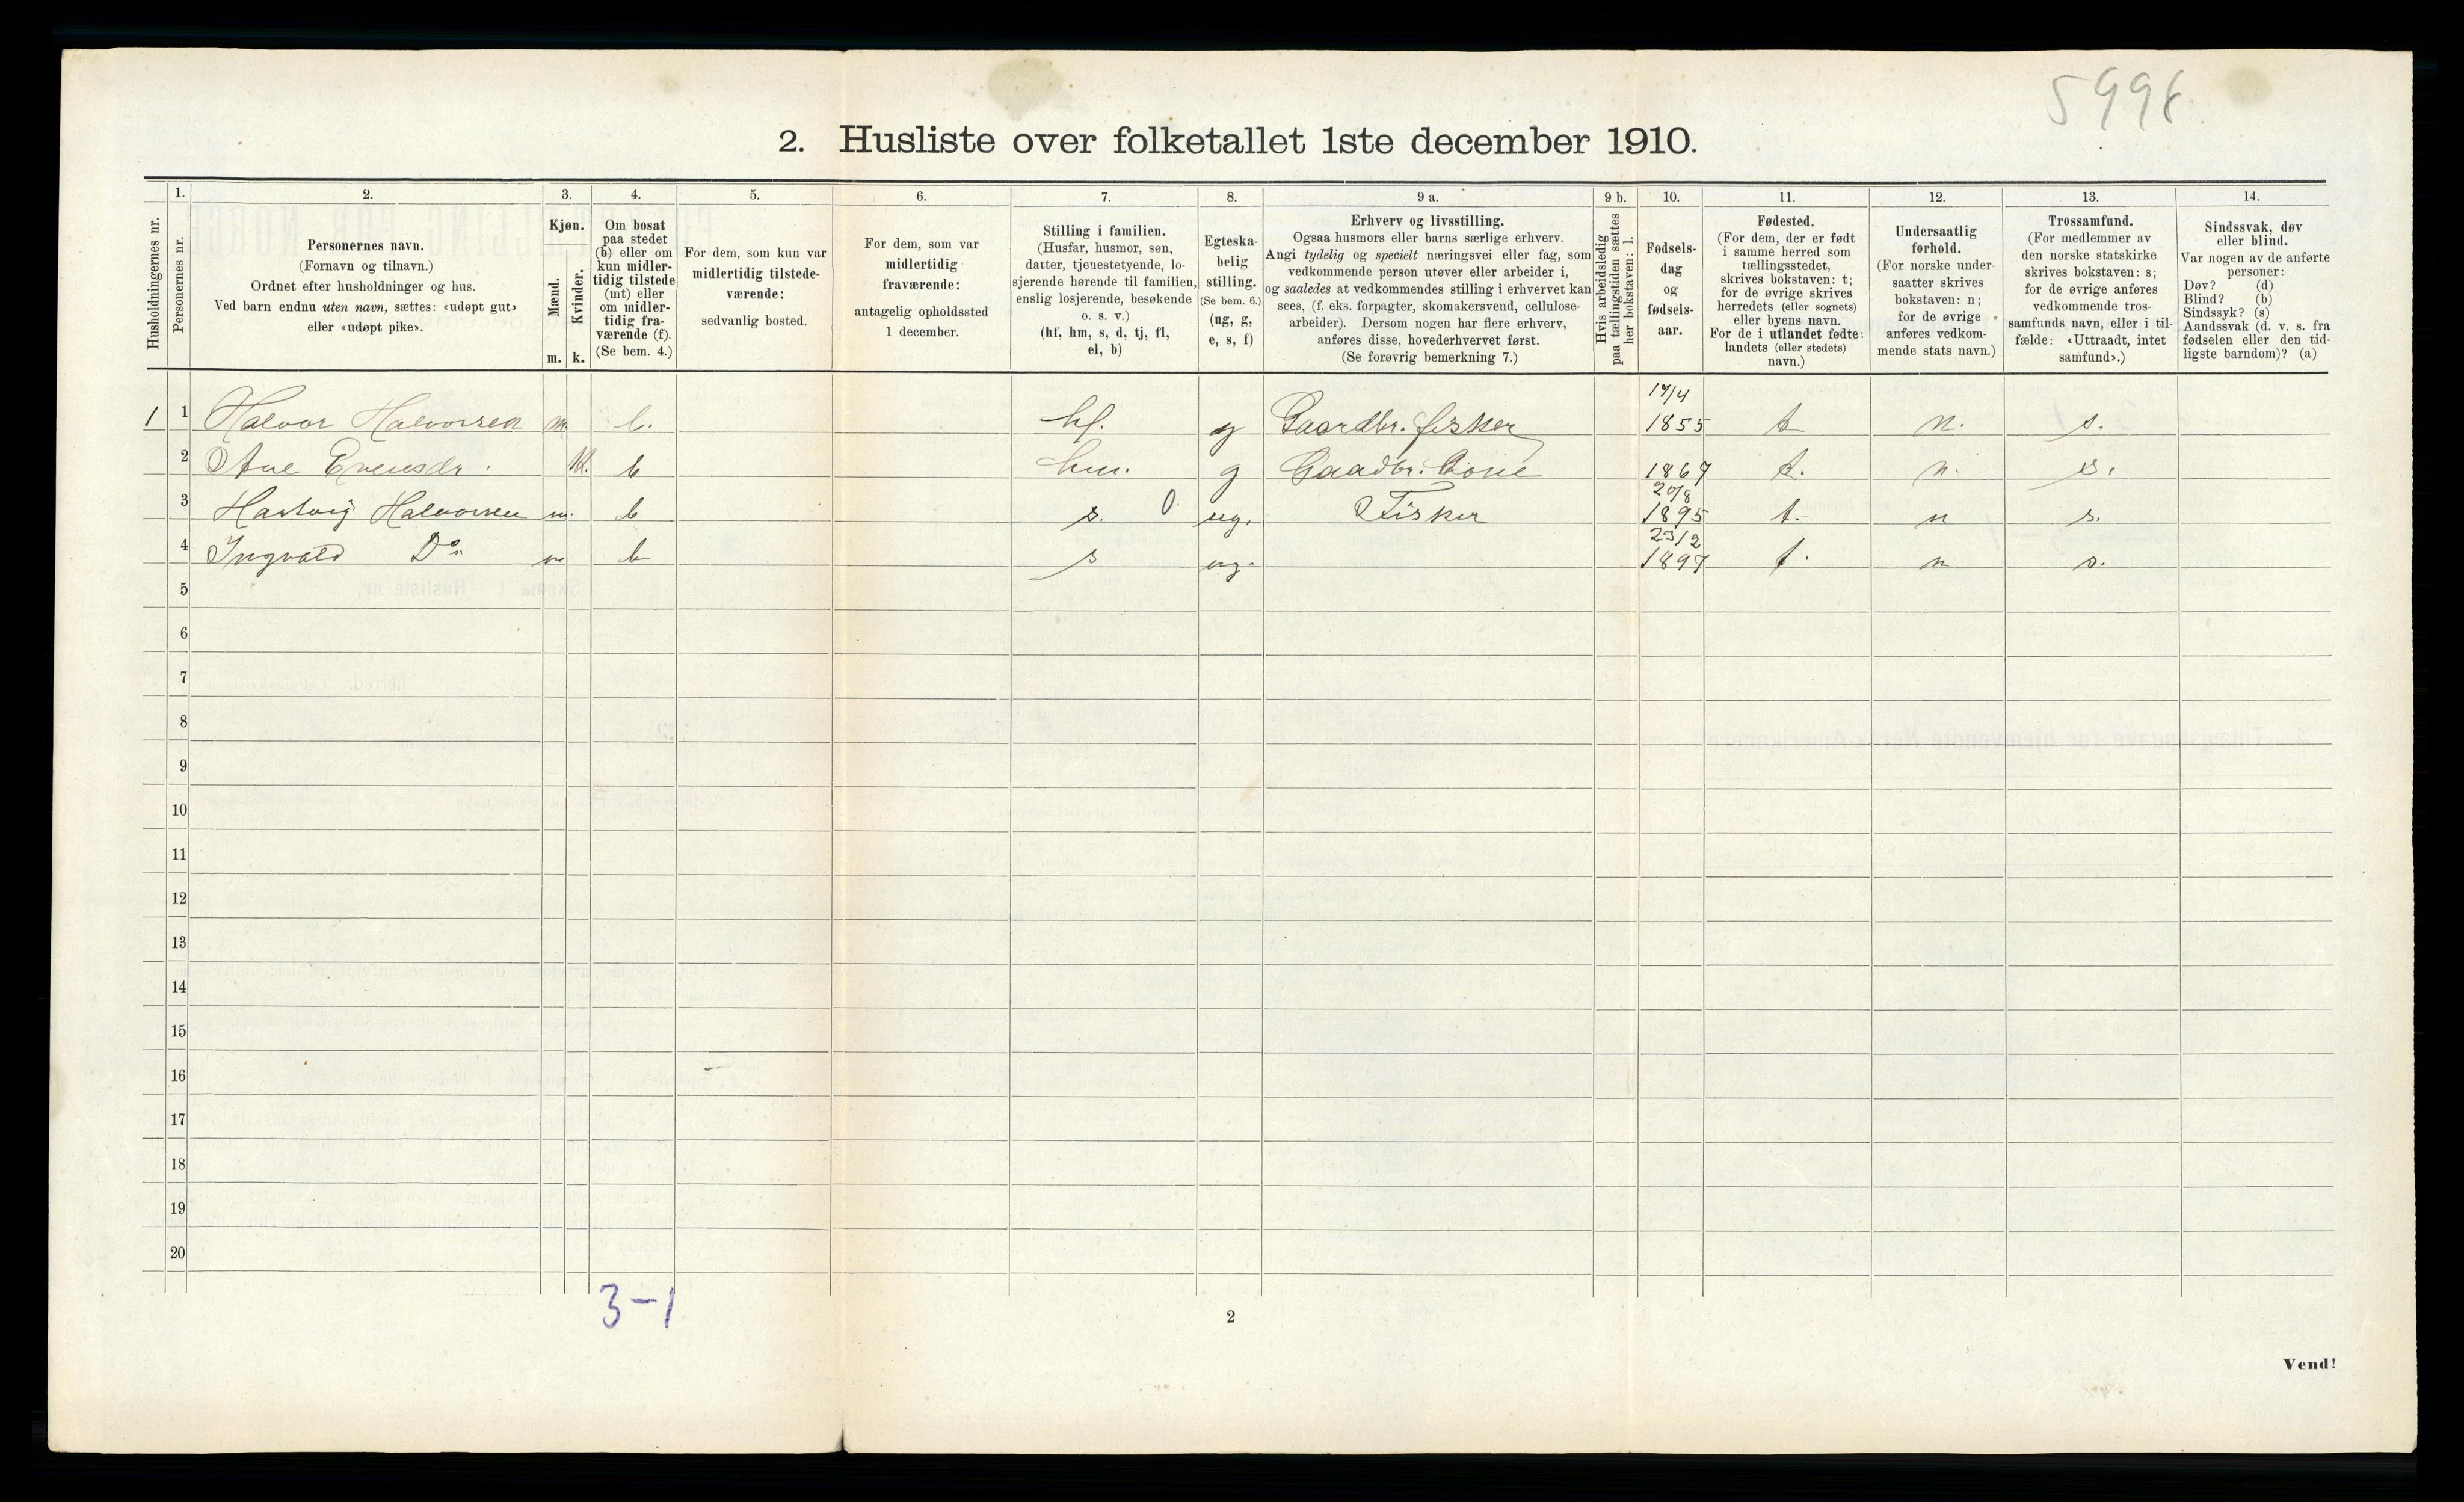 5998
2. Husliste over folketallet 1ste december 1910.
Husholdningernes nr.
1.
Personernes nr.
2.
Personernes navn.
(Fornavn og tilnavn.)
Ordnet efter husholdninger og hus.
Ved barn endnu uten navn, sættes: «udøpt gut»
eller «udøpt pike».
3.
Kjøn.
Mænd.
Kvinder.
m. k.
4.
Om bosat
paa stedet
(b) eller om
kun midler-
tidig tilstede
(mt) eller
om midler-
tidig fra-
værende (f).
(Se bem. 4.)
5.
For dem, som kun var
midlertidig tilstede-
værende:
sedvanlig bosted.
6.
For dem, som var
midlertidig
fraværende:
antagelig opholdssted
1 december.
7.
Stilling i familien.
(Husfar, husmor, søn,
datter, tjenestetyende, lo-
sjerende hørende til familien,
enslig losjerende, besøkende
o. s. v.)
(hf, hm, s, d, tj, fl,
el, b)
8.
Egteska-
belig
stilling.
(Se bem. 6.)
(ug, g,
e, s, f)
9 a.
Erhverv og livsstilling.
Ogsaa husmors eller barns særlige erhverv.
Angi tydelig og specielt næringsvei eller fag, som
vedkommende person utøver eller arbeider i,
og saaledes at vedkommendes stilling i erhvervet kan
sees, (f. eks. forpagter, skomakersvend, cellulose-
arbeider). Dersom nogen har flere erhverv,
anføres disse, hovederhvervet først.
(Se forøvrig bemerkning 7.)
9 b.
Hvis arbeidsledig
paa tællingstiden sættes
her bokstaven: l.
10.
Fødsels-
dag
og
fødsels-
aar.
11.
Fødested.
(For dem, der er født
i samme herred som
tællingsstedet,
skrives bokstaven: t;
for de øvrige skrives
herredets (eller sognets)
eller byens navn.
For de i utlandet fødte:
landets (eller stedets)
navn.)
12.
Undersaatlig
forhold.
(For norske under-
saatter skrives
bokstaven: n;
for de øvrige
anføres vedkom-
mende stats navn.)
13.
Trossamfund.
(For medlemmer av
den norske statskirke
skrives bokstaven: s;
for de øvrige anføres
vedkommende tros-
samfunds navn, eller i til-
fælde: «Uttraadt, intet
samfund».)
14.
Sindssvak, døv
eller blind.
Var nogen av de anførte
personer:
Døv? (d)
Blind? (b)
Sindssyk? (s)
Aandssvak (d. v. s. fra
fødselen eller den tid-
ligste barndom)? (a)
1 1 Halvor Halvorsen m. b. hf. g Gaardbr. fisker 17/4 1855 t n. s.
2 Ane Evensdr. k. b hm. g Gaadbr. Kone 1867 t. n. s.
3 Hartvig Halvorsen m. b s. 0 ug. Fisker 20/8 1895 t. n s.
4 Ingvald Do m b s ug. 23/2 1897 t. n s.
5
6
7
8
9
10
11
12
13
14
15
16
17
18
19
20
3-1
2
Vend!